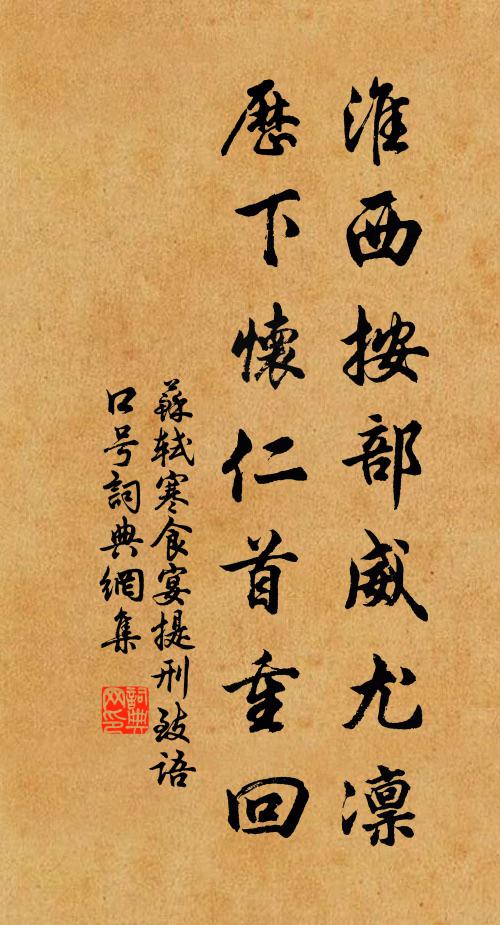 淮西按部威尤凛
歷下懷仁首重回
蘇軾寒食宴提刑致語
口号詞典網集
詞典网印